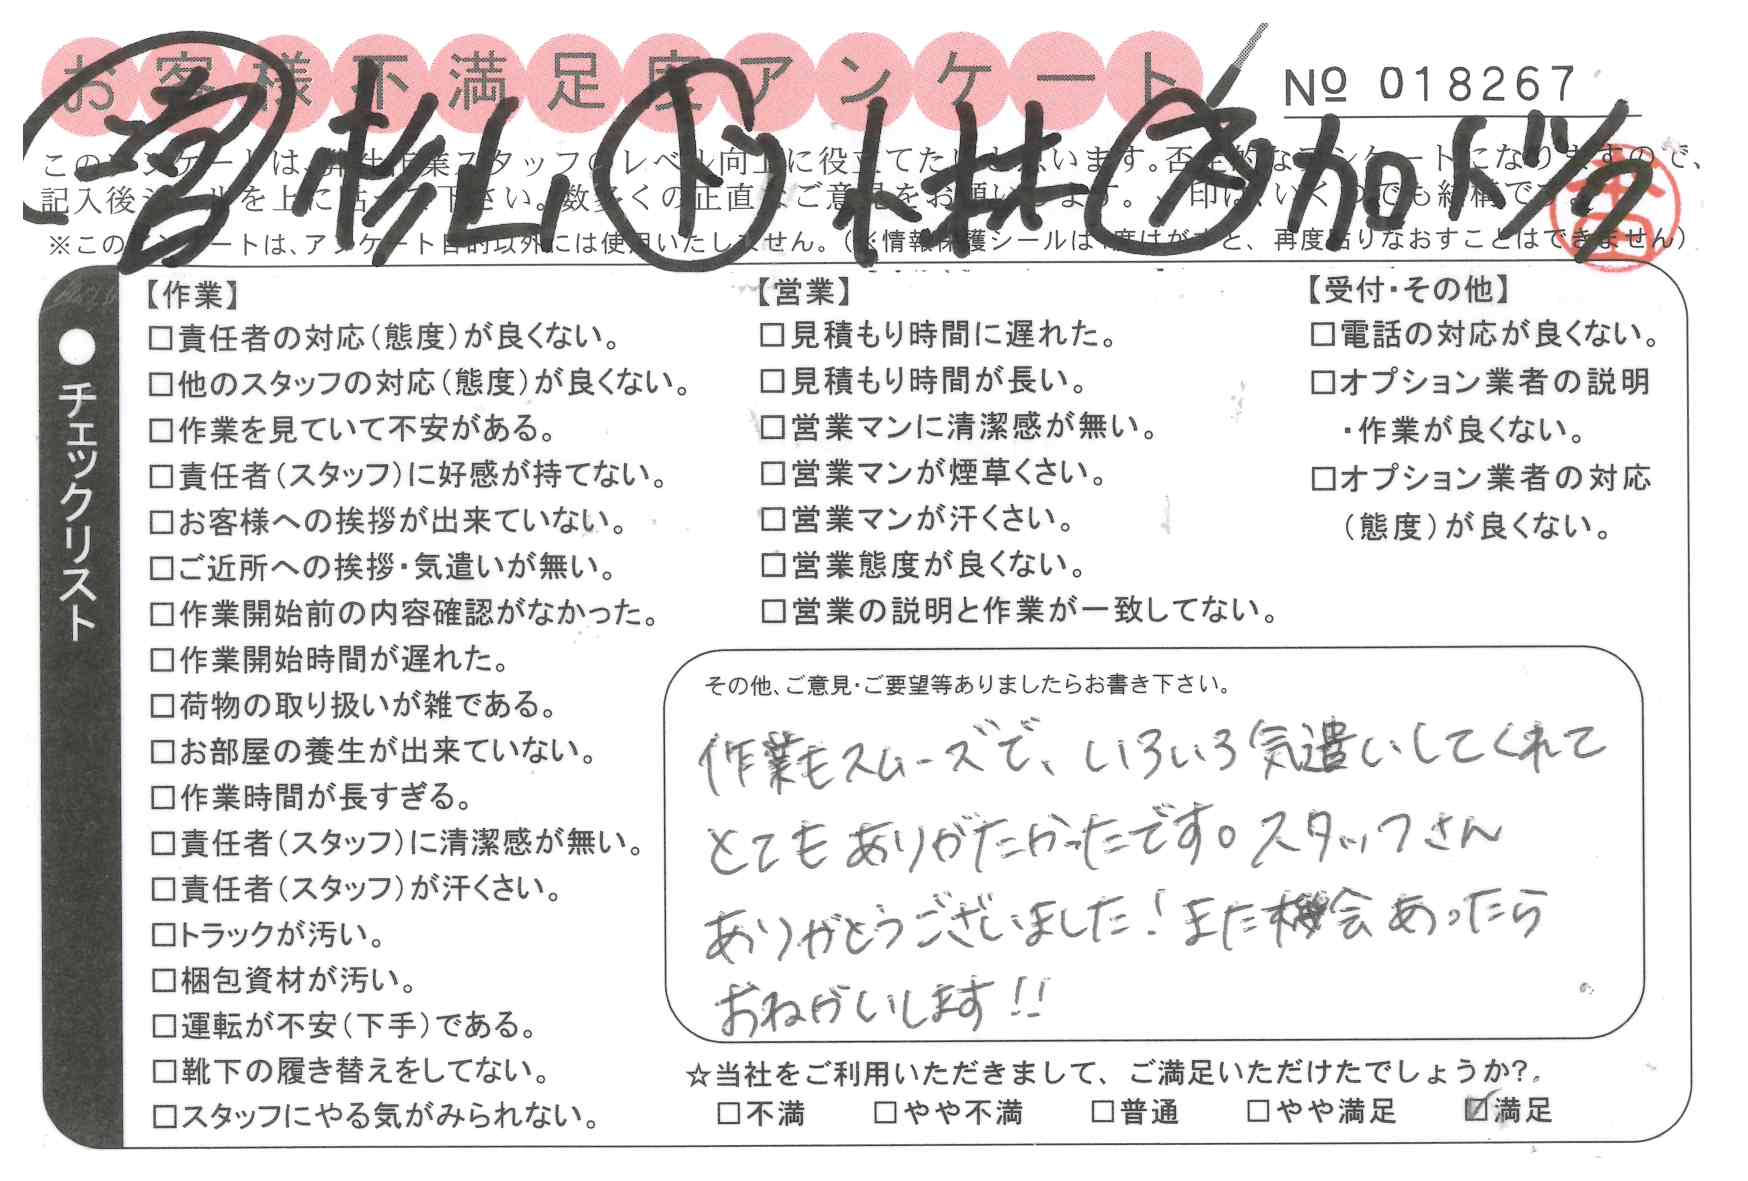 お客様不満足度アンケート
№ 018267
営 杉山 ト 小林 助 加ト
このアンケートは、弊社作業スタッフのレベル向上に役立てたいと思います。否定的なアンケートになりますので、
記入後シールを上に貼って下さい。数多くの正直なご意見をお願いします。✓印は、いくつでも結構です。
※このアンケートは、アンケート目的以外には使用いたしません。(※情報保護シールは1度はがすと、再度貼りなおすことはできません)
●チェックリスト
【作業】
□責任者の対応(態度)が良くない。
□他のスタッフの対応(態度)が良くない。
□作業を見ていて不安がある。
□責任者(スタッフ)に好感が持てない。
□お客様への挨拶が出来ていない。
□ご近所への挨拶・気遣いが無い。
□作業開始前の内容確認がなかった。
□作業開始時間が遅れた。
□荷物の取り扱いが雑である。
□お部屋の養生が出来ていない。
□作業時間が長すぎる。
□責任者(スタッフ)に清潔感が無い。
□責任者(スタッフ)が汗くさい。
□トラックが汚い。
□梱包資材が汚い。
□運転が不安(下手)である。
□靴下の履き替えをしてない。
□スタッフにやる気がみられない。
【営業】
□見積もり時間に遅れた。
□見積もり時間が長い。
□営業マンに清潔感が無い。
□営業マンが煙草くさい。
□営業マンが汗くさい。
□営業態度が良くない。
□営業の説明と作業が一致してない。
【受付・その他】
□電話の対応が良くない。
□オプション業者の説明
・作業が良くない。
□オプション業者の対応
(態度)が良くない。
その他、ご意見・ご要望等ありましたらお書き下さい。
作業もスムーズで、いろいろ気遣いしてくれて
とてもありがたかったです。スタッフさん
ありがとうございました!また機会あったら
おねがいします!!
☆当社をご利用いただきまして、ご満足いただけたでしょうか?
□不満 □やや不満 □普通 □やや満足 ☑満足